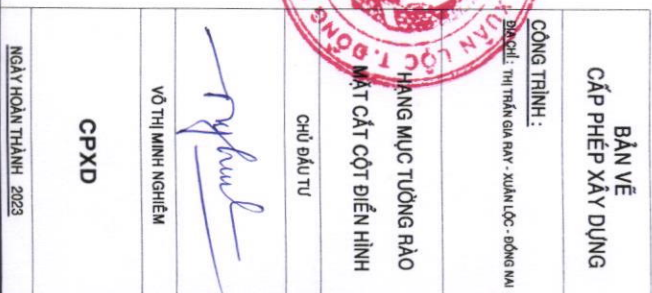 BẢN VẼ
CẤP PHÉP XÂY DỰNG
CÔNG TRÌNH :
ĐỊA CHỈ : THỊ TRẤN GIA RAY - XUÂN LỘC - ĐỒNG NAI
HẠNG MỤC TƯỜNG RÀO
MẶT CẮT CỘT ĐIỂN HÌNH
XUÂN LỘC T. ĐỒNG
CHỦ ĐẦU TƯ
VÕ THỊ MINH NGHIÊM
CPXD
NGÀY HOÀN THÀNH 2023